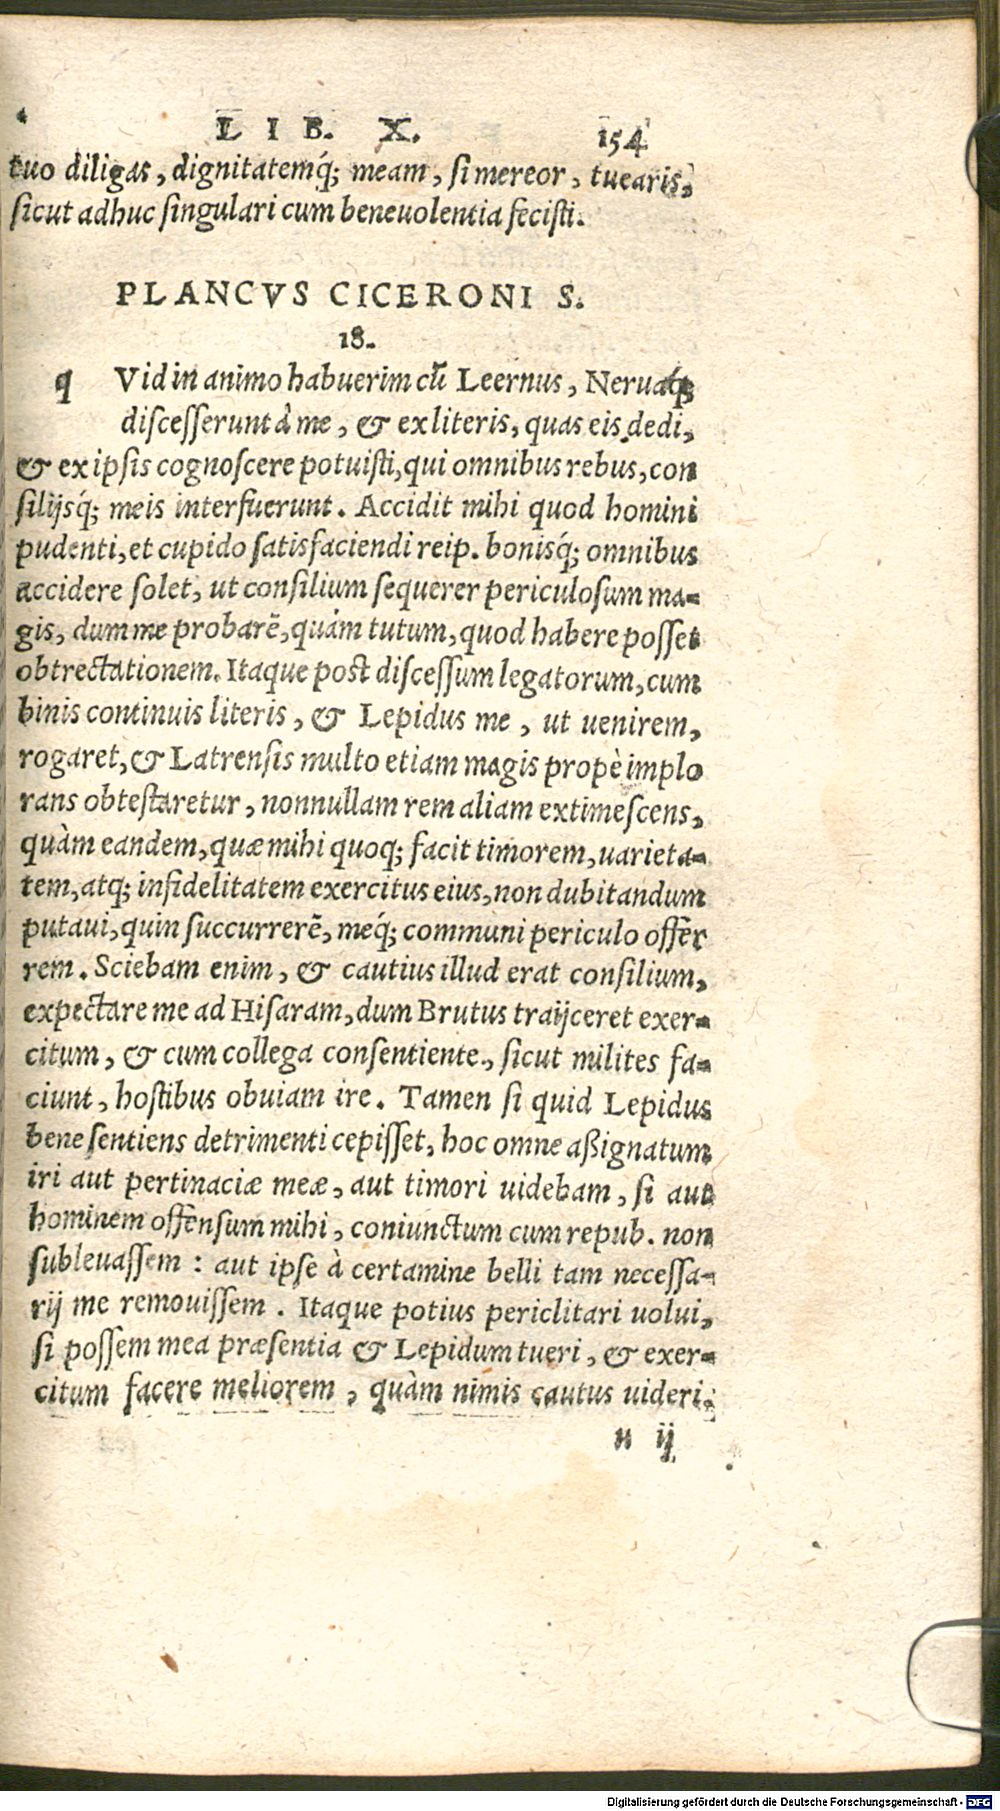 LIB. X. 154
tuo diligas, dignitatemq́; meam, si mereor, tuearis,
sicut adhuc singulari cum beneuolentia fecisti.
PLANCVS CICERONI S.
18.
q Vid in animo habuerim cū Leernus, Neruaq́;
discesserunt à me, & ex literis, quas eis dedi,
& ex ipsis cognoscere potuisti, qui omnibus rebus, con
silijsq́; meis interfuerunt. Accidit mihi quod homini
pudenti, et cupido satisfaciendi reip. bonisq́; omnibus
accidere solet, ut consilium sequerer periculosum ma-
gis, dum me probarē, quàm tutum, quod habere posset
obtrectationem. Itaque post discessum legatorum, cum
binis continuis literis, & Lepidus me, ut uenirem,
rogaret, & Latrensis multo etiam magis propè implo
rans obtestaretur, nonnullam rem aliam extimescens,
quàm eandem, quæ mihi quoq; facit timorem, uarieta-
tem, atq; infidelitatem exercitus eius, non dubitandum
putaui, quin succurrerē, meq́; communi periculo offer
rem. Sciebam enim, & cautius illud erat consilium,
expectare me ad Hisaram, dum Brutus traijceret exer-
citum, & cum collega consentiente, sicut milites fa-
ciunt, hostibus obuiam ire. Tamen si quid Lepidus
bene sentiens detrimenti cepisset, hoc omne aßignatum
iri aut pertinaciæ meæ, aut timori uidebam, si aut
hominem offensum mihi, coniunctum cum repub. non
subleuassem : aut ipse à certamine belli tam necessa-
rij me remouissem. Itaque potius periclitari uolui,
si possem mea præsentia & Lepidum tueri, & exer-
citum facere meliorem, quàm nimis cautus uideri.
u ij
Digitalisierung gefördert durch die Deutsche Forschungsgemeinschaft - DFG